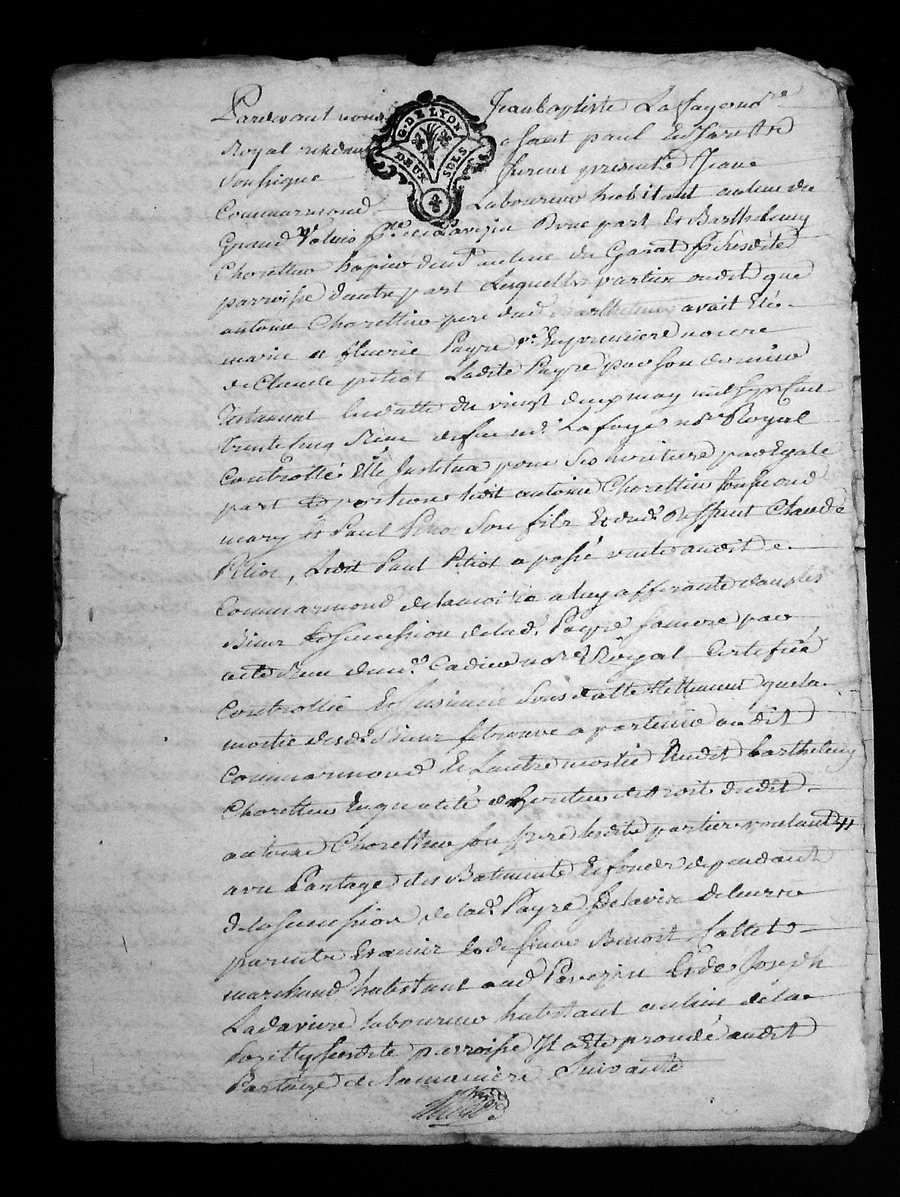 Pardevant nous Jean baptiste Lafay nore
Royal a saint paul En Jarest
Soussigne furent presents Jean
Commarmond Laboureur habitant au lieu du
Grand Valuis psse de Pavezin Dune part Et Barthelemy
Chorettier du lieu du Garat psse susdite
parroisse d'autre part Lesquelles parties ont dit que
antoine Chorettier pere dud Barthelemy avait Eté
marié a fleurie Payre ve En premiere noce
de Claude pitiot Ladite Payre par son dernier
Testament sus datte du vingt deux may mil sept Cent
trente Cinq Reçu deffunt me Lafaye nore Royal
Controllé Elle Institua pour ses heritiers par Egale
part Et portion ledit antoine Chorettier son second
mary Et Paul Pitiot Son fils Et dudt deffunt Claude
Pitiot, Ledit Paul Pitiot a passé vente audit
Commarmond de la moitié a luy afferante dans les
Biens Et succession de lad. Payre sa mere par
acte Reçu dume Cadier nore Royal Certifiée
Controllée Et Insinuée Sous datte tellement que la
moitié desd. Biens se trouve apartenir audit
Commarmond Et Lautre moitié Audit barthelemy
Chorettier En qualité d'heritier de droit dudit
antoine Chorettier son pere lesdites parties voulant
avec Partage des Batiments Et fonds dependant
de la succession de lad. Payre De lavis de leurs
parents Et amis Et de sieur Benoist fallet
marchand habitant aud Pavezin Et de Joseph
Ladaviere laboureur habitant au lieu de la
susdite parroisse Il a Eté procédé audit
Partage de la maniere Suivante